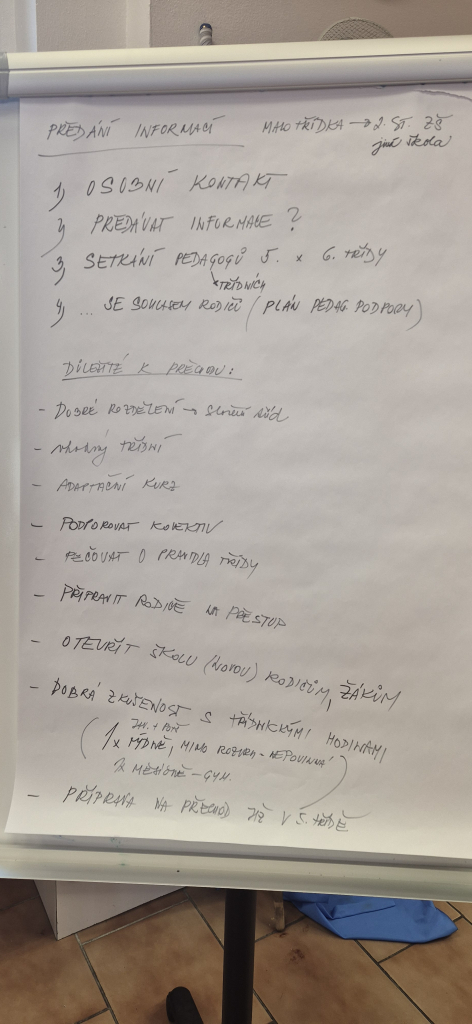 PŘEDÁNÍ INFORMACÍ MALOTŘÍDKA → 2. ST. ZŠ
jiná škola
1) OSOBNÍ KONTAKT
2) PŘEDÁVAT INFORMACE?
3) SETKÁNÍ PEDAGOGŮ 5. x 6. TŘÍDY
TŘÍDNÍCH
4) ... SE SOUHLASEM RODIČŮ (PLÁN PEDAG. PODPORY)
DŮLEŽITÉ K PŘECHODU:
- DOBRÉ ROZDĚLENÍ → složení tříd
- vhodný TŘÍDNÍ
- ADAPTAČNÍ KURZ
- PODPOROVAT KOLEKTIV
- PEČOVAT O PRAVIDLA TŘÍDY
- PŘIPRAVIT RODIČE NA PŘESTUP
- OTEVŘÍT ŠKOLU (NOVOU) RODIČŮM, ŽÁKŮM
- DOBRÁ ZKUŠENOST S TŘÍDNICKÝMI HODINAMI
(1x TÝDNĚ, MIMO ROZVRH - NEPOVINNÁ
MĚSÍČNĚ - GYM.)
- PŘÍPRAVA NA PŘECHOD JIŽ V 5. TŘÍDĚ